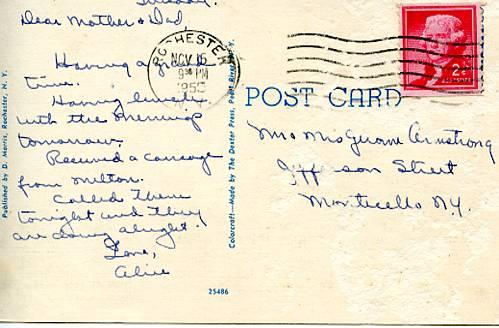 Tuesday.
Dear Mother & Dad,
Having a good
time.
Having lunch
with the
tomorrow.
Received a corsage
from Milton.
Called them
tonight and they
are doing alright.
Love,
Alice
Published by D. Morris, Rochester, N. Y.
Colorcraft—Made by The Dexter Press, Pearl River, N. Y.
25486
ROCHESTER
NOV 15
9 30 PM
1955
2¢
POST CARD
Armstrong
Jefferson Street
Monticello N.Y.